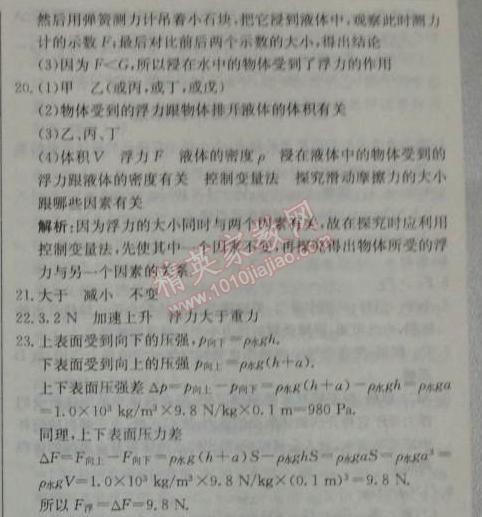 然后用弹簧测力计吊着小石块,把它浸到液体中,观察此时测力
计的示数F;最后对比前后两个示数的大小,得出结论
(3)因为F<G,所以浸在水中的物体受到了浮力的作用
20.(1)甲 乙(或丙,或丁,或戊)
(2)物体受到的浮力跟物体排开液体的体积有关
(3)乙、丙、丁
(4)体积V 浮力F 液体的密度ρ 浸在液体中的物体受到的
浮力跟液体的密度有关 控制变量法 探究滑动摩擦力的大小
跟哪些因素有关
解析:因为浮力的大小同时与两个因素有关,故在探究时应利用
控制变量法,先使其中一个因素不变,再探究得出物体所受的浮
力与另一个因素的关系
21.大于 减小 不变
22.3.2 N 加速上升 浮力大于重力
23.上表面受到向下的压强,p向下=ρ水gh.
下表面受到向上的压强p向上=ρ水g(h+a).
上下表面压强差Δp=p向上-p向下=ρ水g(h+a)-ρ水gh=ρ水ga
=1.0×10³ kg/m³×9.8 N/kg×0.1 m=980 Pa.
同理,上下表面压力差
ΔF=F向上-F向下=ρ水g(h+a)S-ρ水ghS=ρ水gaS=ρ水ga³=
ρ水gV=1.0×10³ kg/m³×9.8 N/kg×(0.1 m)³=9.8 N.
所以F浮=ΔF=9.8 N.
精英家教网
www.1010jiajiao.com